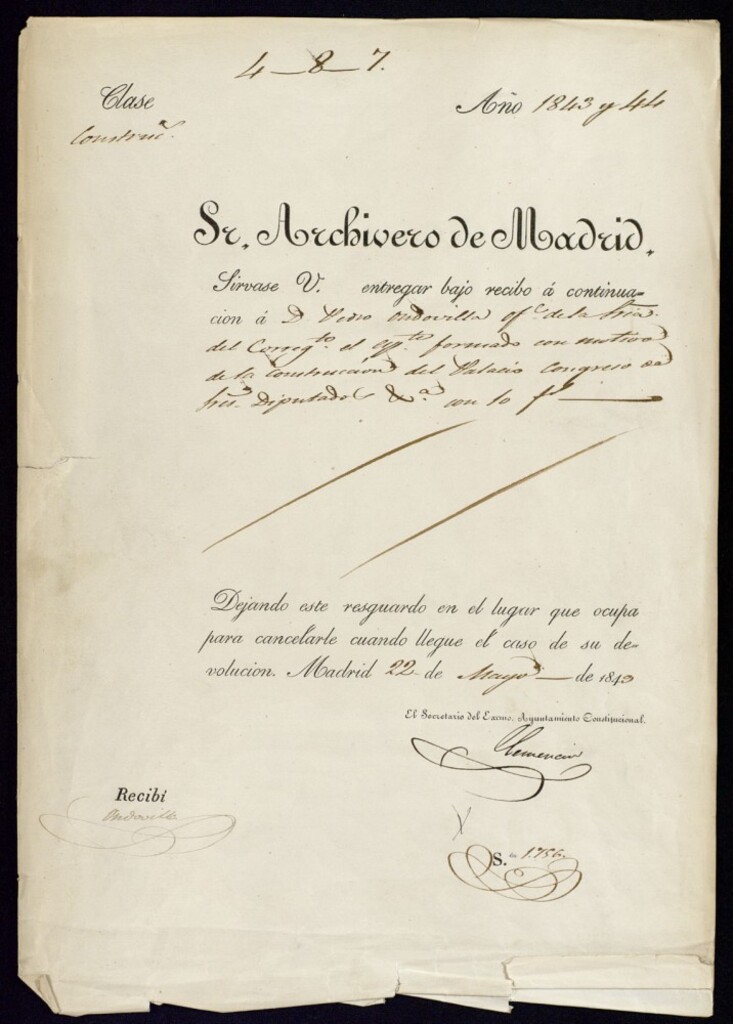 4-8-7.
Clase
Construc.ⁿ
Año 1843 y 44
Sr. Archivero de Madrid.
Sírvase V. entregar bajo recibo á continua-
cion á D. Pedro Ondovilla of.ˡ de la Sría.
del Correg.ᵗᵒ el esp.ᵗᵉ formado con motivo
de la Construccion del Palacio Congreso de
Sres. Diputados &.ª con lo
Dejando este resguardo en el lugar que ocupa
para cancelarle cuando llegue el caso de su de-
volucion. Madrid 22 de Mayo de 184
El Secretario del Excmo. Ayuntamiento Constitucional.
Clemencin
Recibí
Ondovilla
S. 1.756.